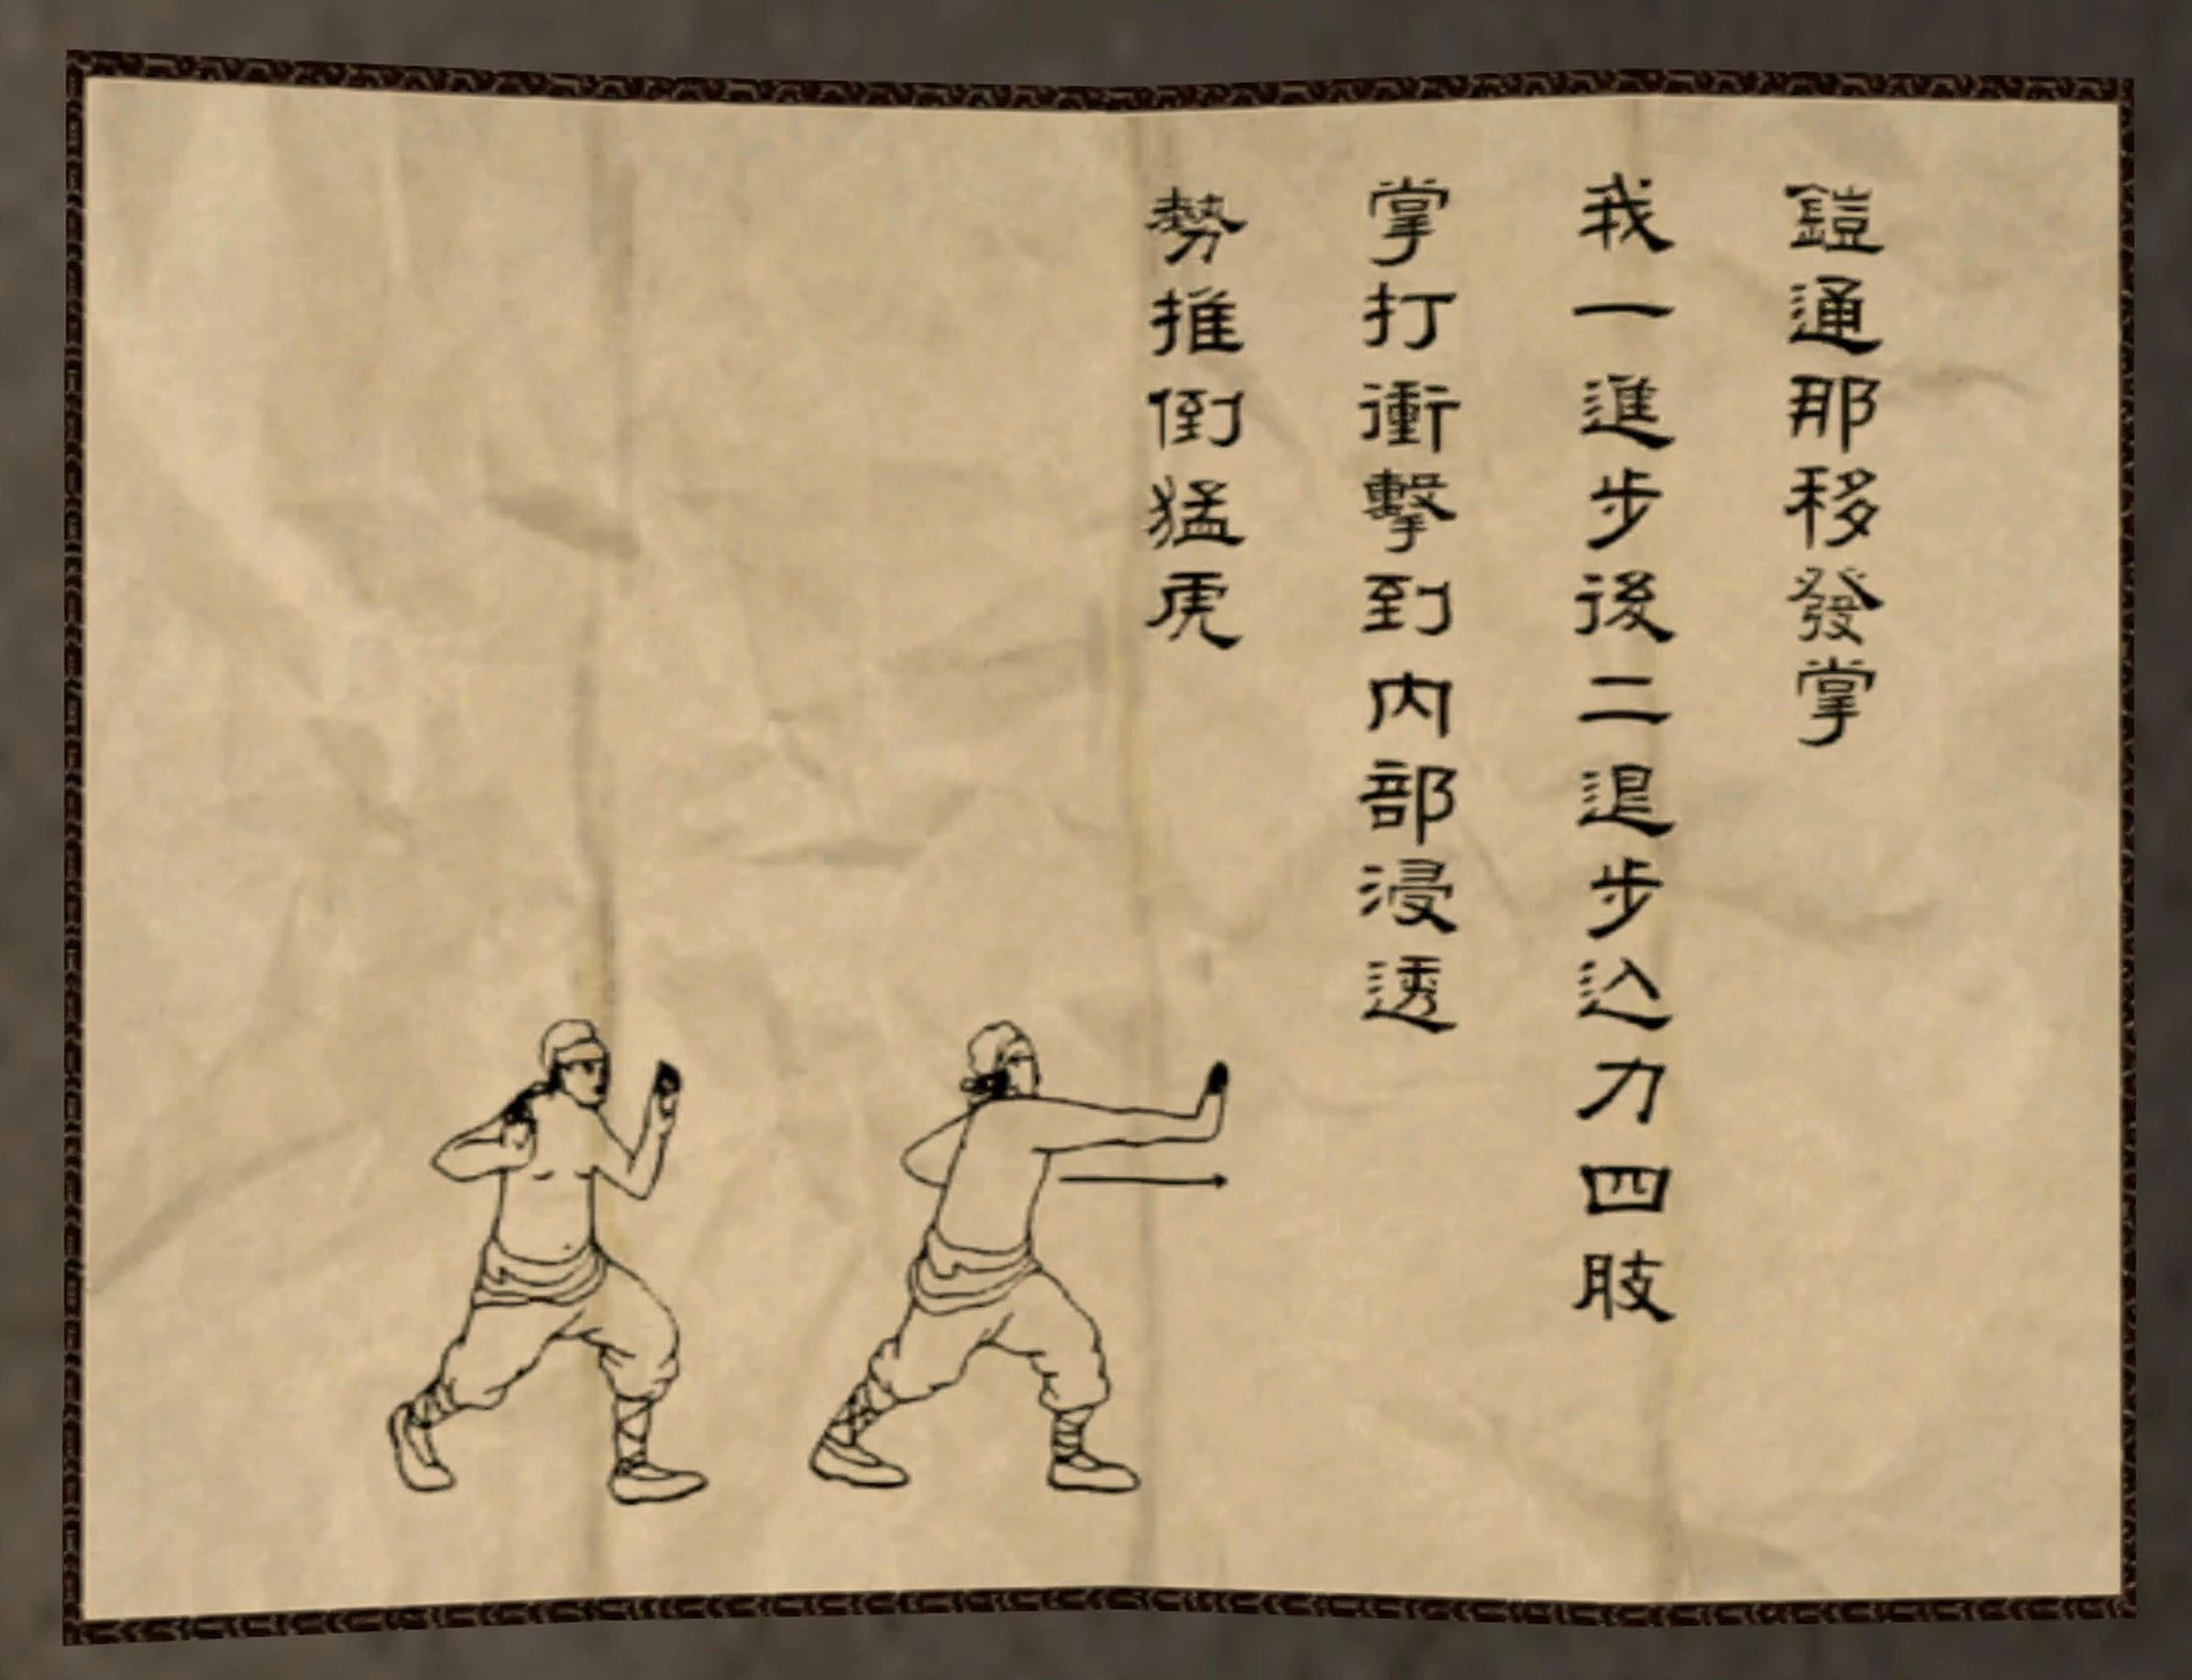 鎧通那移發掌
我一進步後二退步込力四肢
掌打衝擊到内部浸透
勢推倒猛虎